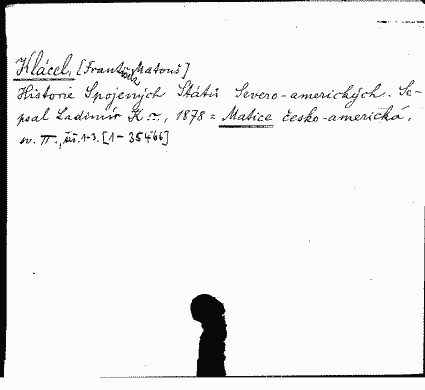 Klácel, [František Matouš]
Historie Spojených Států Severo-amerických. Se-
psal Ladimír K. –, 1878 = Matice česko-americká,
sv. II., čís. 1-3. [1-35466]